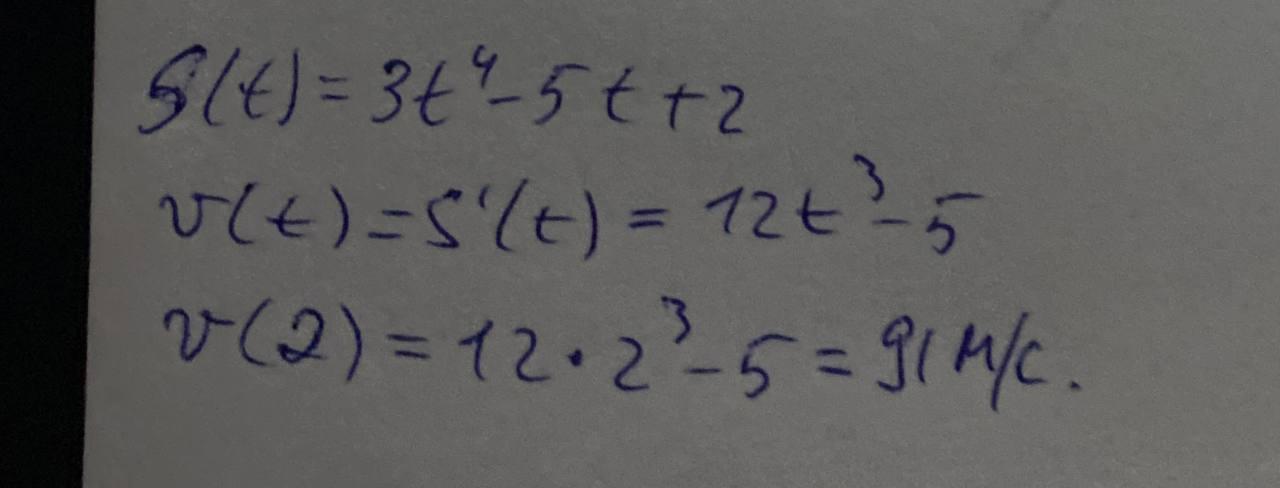 S(t) = 3t⁴ - 5t + 2
v(t) = S'(t) = 12t³ - 5
v(2) = 12 · 2³ - 5 = 91 м/с.